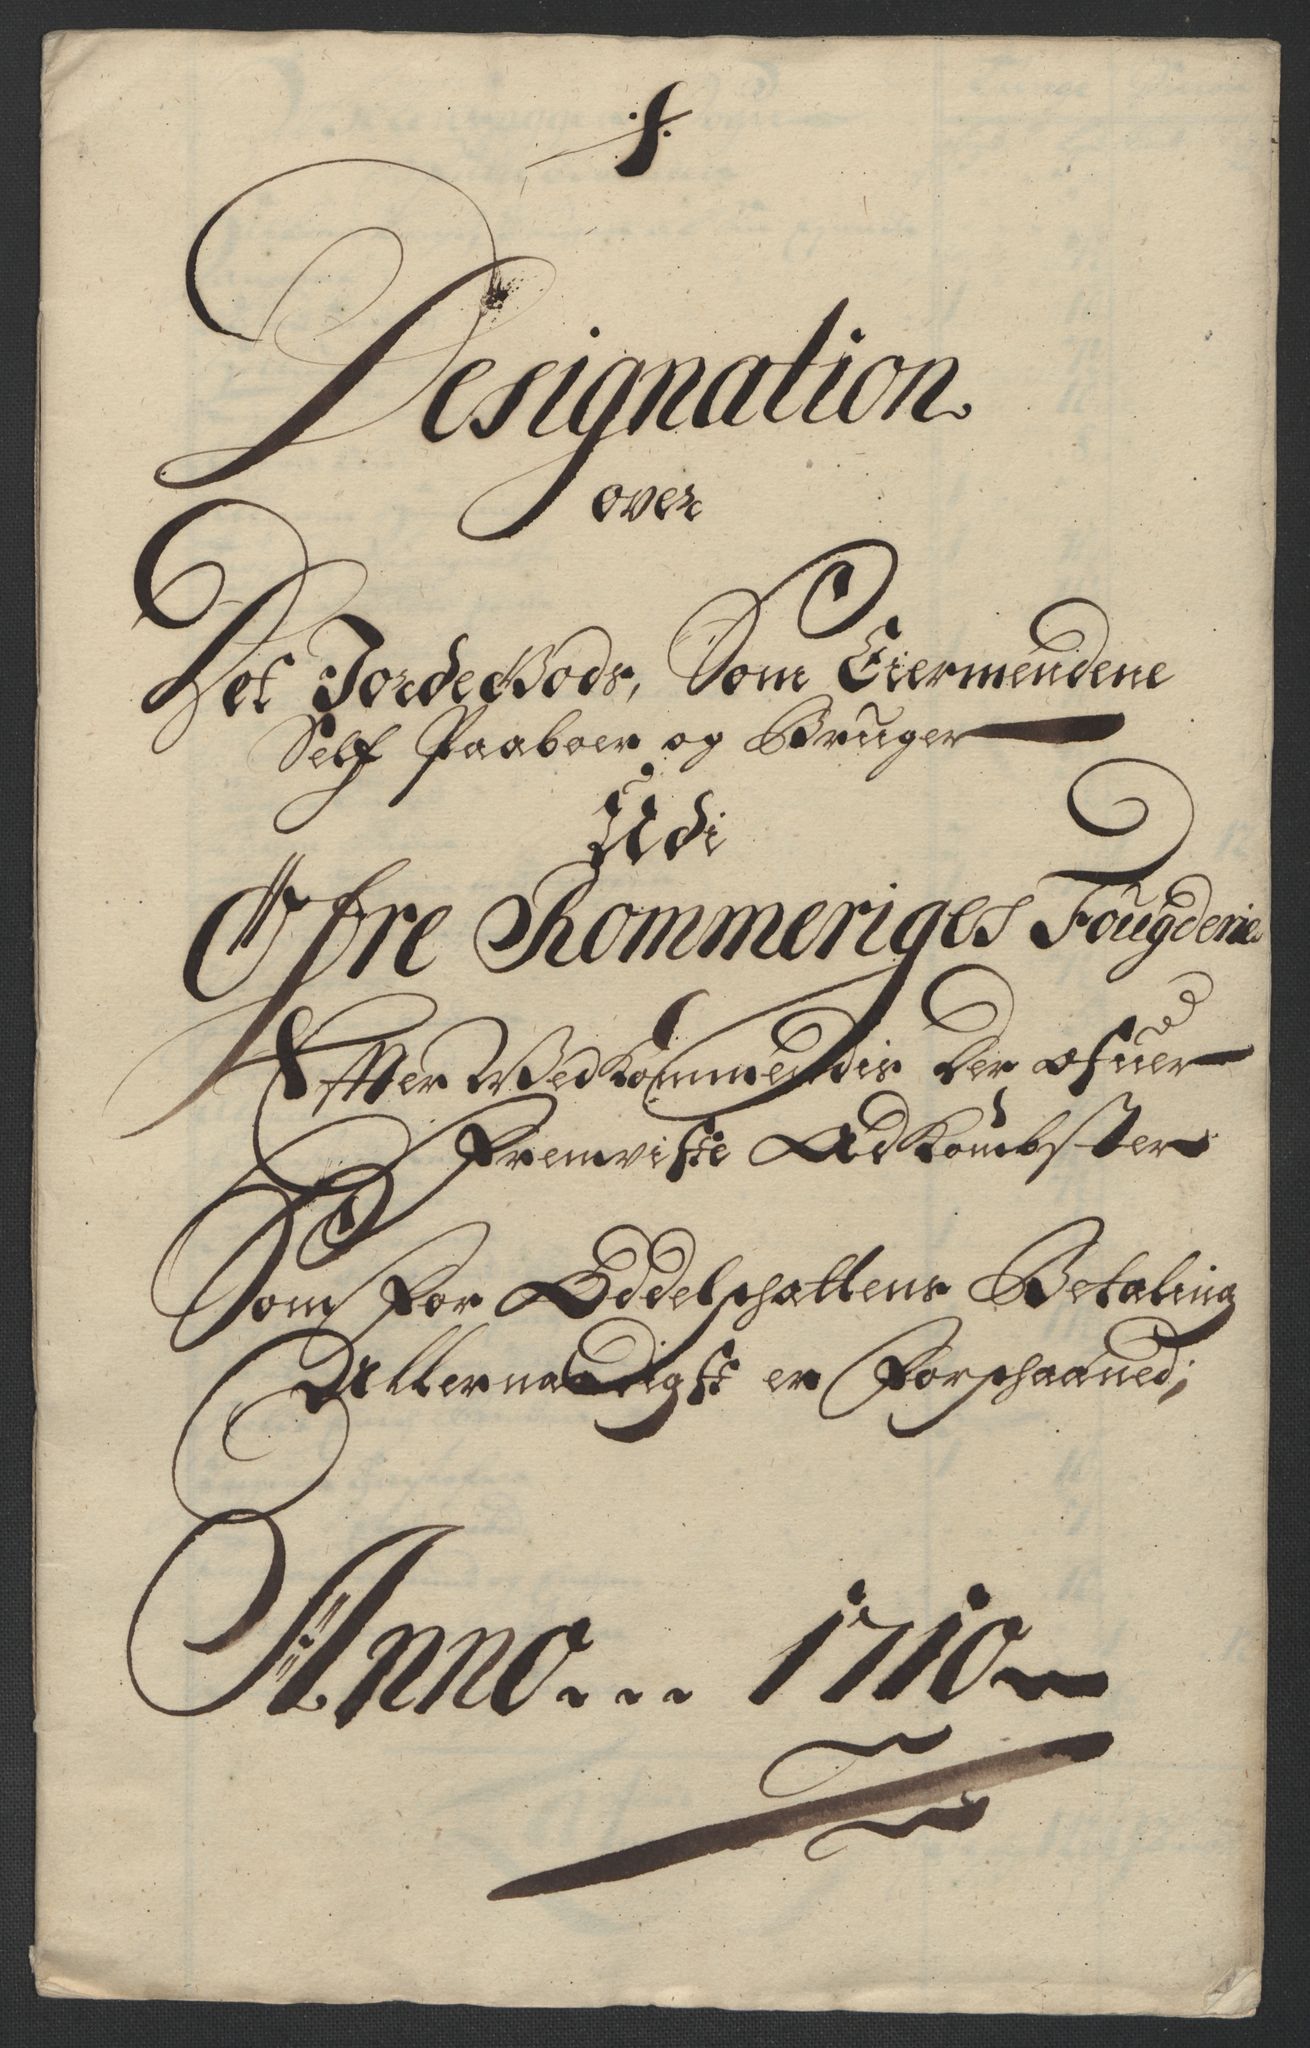 Designation
over
Det JordeGods, Som Eiermendene
Self Paaboer og Bruger
Udi
Øfre Rommeriges Fougderie
Efter Wedkommendis der ofuer
Fremviste Adkombster
Som for Oddelschattens Betaling
Allernaadigst er Forschaaned;
Anno... 1710